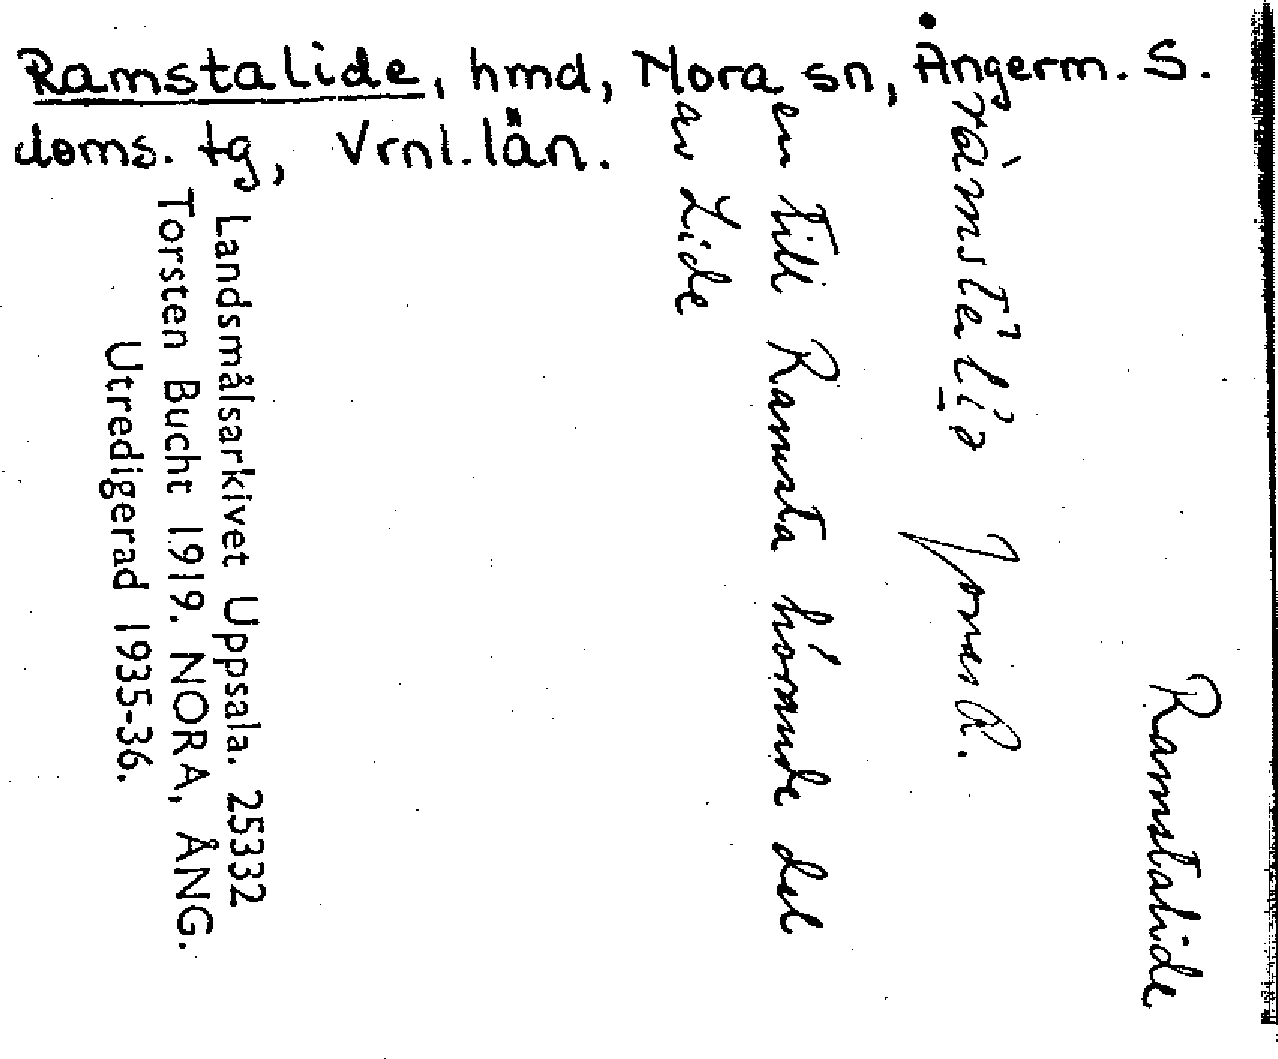 Ramstalide, hmd, Nora sn, Ångerm. S.
doms. tg, Vrnl. län.
Ramstalide
Jonsen R.
en till Ramsta hörande del
av Lide
Landsmålsarkivet Uppsala. 25332
Torsten Bucht 1919. NORA, ÅNG.
Utredigerad 1935-36.